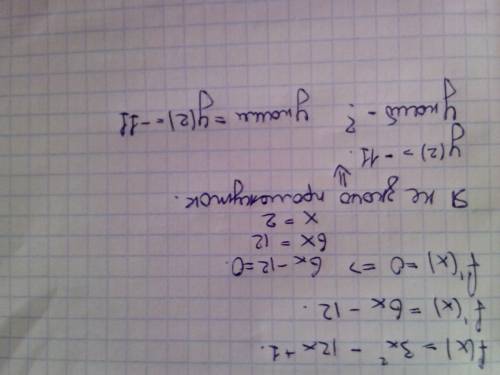 f(x) = 3x² - 12x + 1.
f'(x) = 6x - 12.
f'(x) = 0 => 6x - 12 = 0.
6x = 12
x = 2
Я не знаю промежуток.
⇓
y(2) = -11.
yнаиб - ? yнаим = y(2) = -11